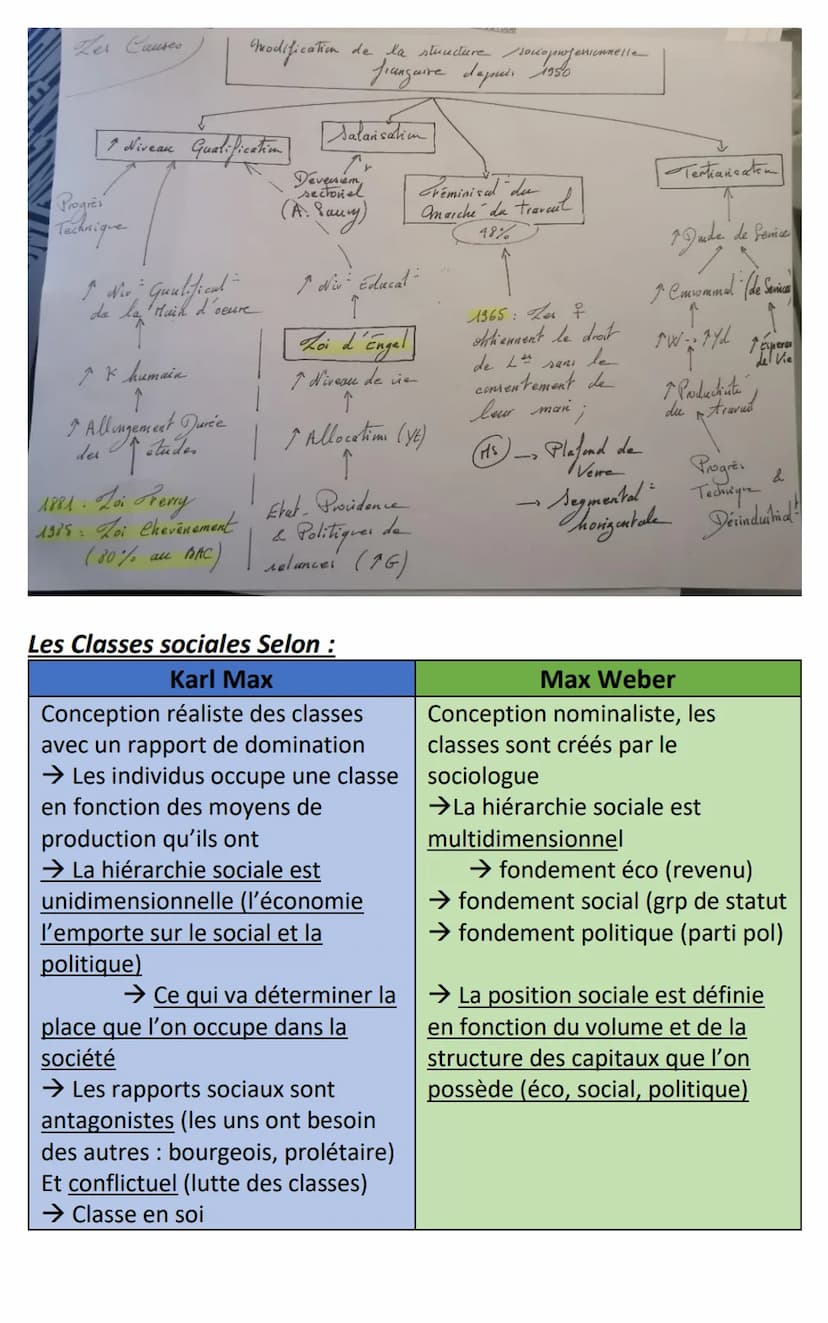 Les Causes
Modification de la structure socioprofessionnelle
française depuis 1950
↑ Niveau Qualification
Salarisation
Féminisat° du
Marché du Travail
48%
Tertiarisation
Progrès
Technique
Déversem
sectoriel
(A. Sauvy)
↑ Niv = Qualificat°
de la Main d'oeuvre
↑ K humain
↑ Allongement Durée
des études
1881 : Loi Ferry
1985 : Loi Chevènement
(80% au BAC)
↑ Niv = Educat°
Loi d'Engel
↑ Niveau de vie
↑ Allocations (YE)
Etat-Providence
& Politiques de
relances (↑G)
1965 : Les ♀
obtiennent le droit
de L^er sans le
consentement de
leur mari ;
(Hs) → Plafond de
Verre
→ Segmentat°
horizontale
↑ Dmde de Service
↑ Consommat° (de Services)
↑W → ↑Yd
↑ Espérance
de Vie
↑ Productivité
du travail
Progrès
Technique &
Désindustrial°
Les Classes sociales Selon :
Karl Max
Conception réaliste des classes
avec un rapport de domination
→ Les individus occupe une classe
en fonction des moyens de
production qu'ils ont
→ La hiérarchie sociale est
unidimensionnelle (l'économie
l'emporte sur le social et la
politique)
→ Ce qui va déterminer la
place que l'on occupe dans la
société
→ Les rapports sociaux sont
antagonistes (les uns ont besoin
des autres : bourgeois, prolétaire)
Et conflictuel (lutte des classes)
→ Classe en soi
Max Weber
Conception nominaliste, les
classes sont créés par le
sociologue
→La hiérarchie sociale est
multidimensionnel
→ fondement éco (revenu)
→ fondement social (grp de statut
→ fondement politique (parti pol)
→ La position sociale est définie
en fonction du volume et de la
structure des capitaux que l'on
possède (éco, social, politique)